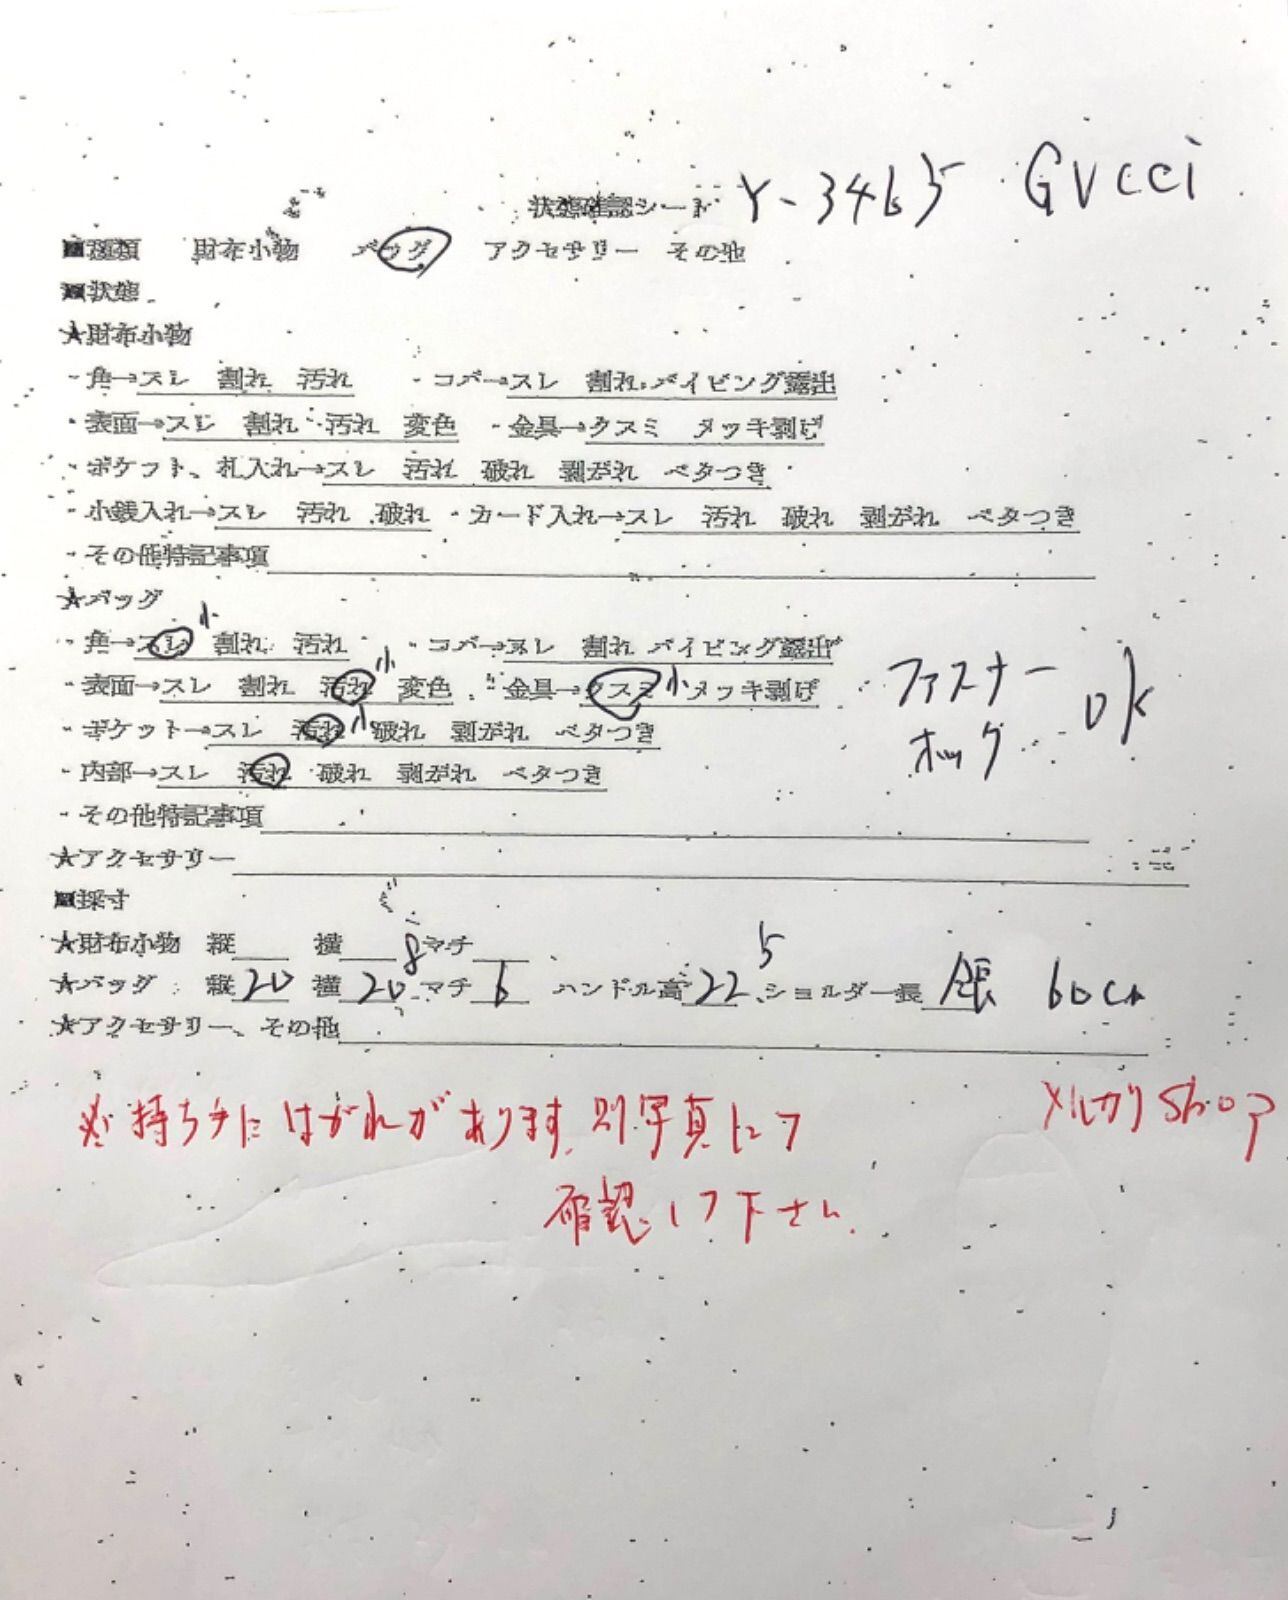 状態確認シート Y-3465 GUCCI
■種類 財布小物 バッグ アクセサリー その他
■状態
★財布小物
・角→スレ 割れ 汚れ ・コバ→スレ 割れ パイピング露出
・表面→スレ 割れ 汚れ 変色 ・金具→クスミ メッキ剥げ
・ポケット、札入れ→スレ 汚れ 破れ 剥がれ ベタつき
・小銭入れ→スレ 汚れ 破れ ・カード入れ→スレ 汚れ 破れ 剥がれ ベタつき
・その他特記事項
★バッグ
・角→スレ小 割れ 汚れ ・コバ→スレ 割れ パイピング露出
・表面→スレ 割れ 汚れ小 変色 ・金具→クスミ小 メッキ剥げ
ファスナー
ホック OK
・ポケット→スレ 汚れ小 破れ 剥がれ ベタつき
・内部→スレ 汚れ 破れ 剥がれ ベタつき
・その他特記事項
★アクセサリー
■採寸
★財布小物 縦 横 マチ
★バッグ 縦20 横20.8 マチ6 ハンドル高22.5 ショルダー長 60cm
★アクセサリー、その他
※持ち手にはがれがあります。別写真にて
確認して下さい。
メルカリShop